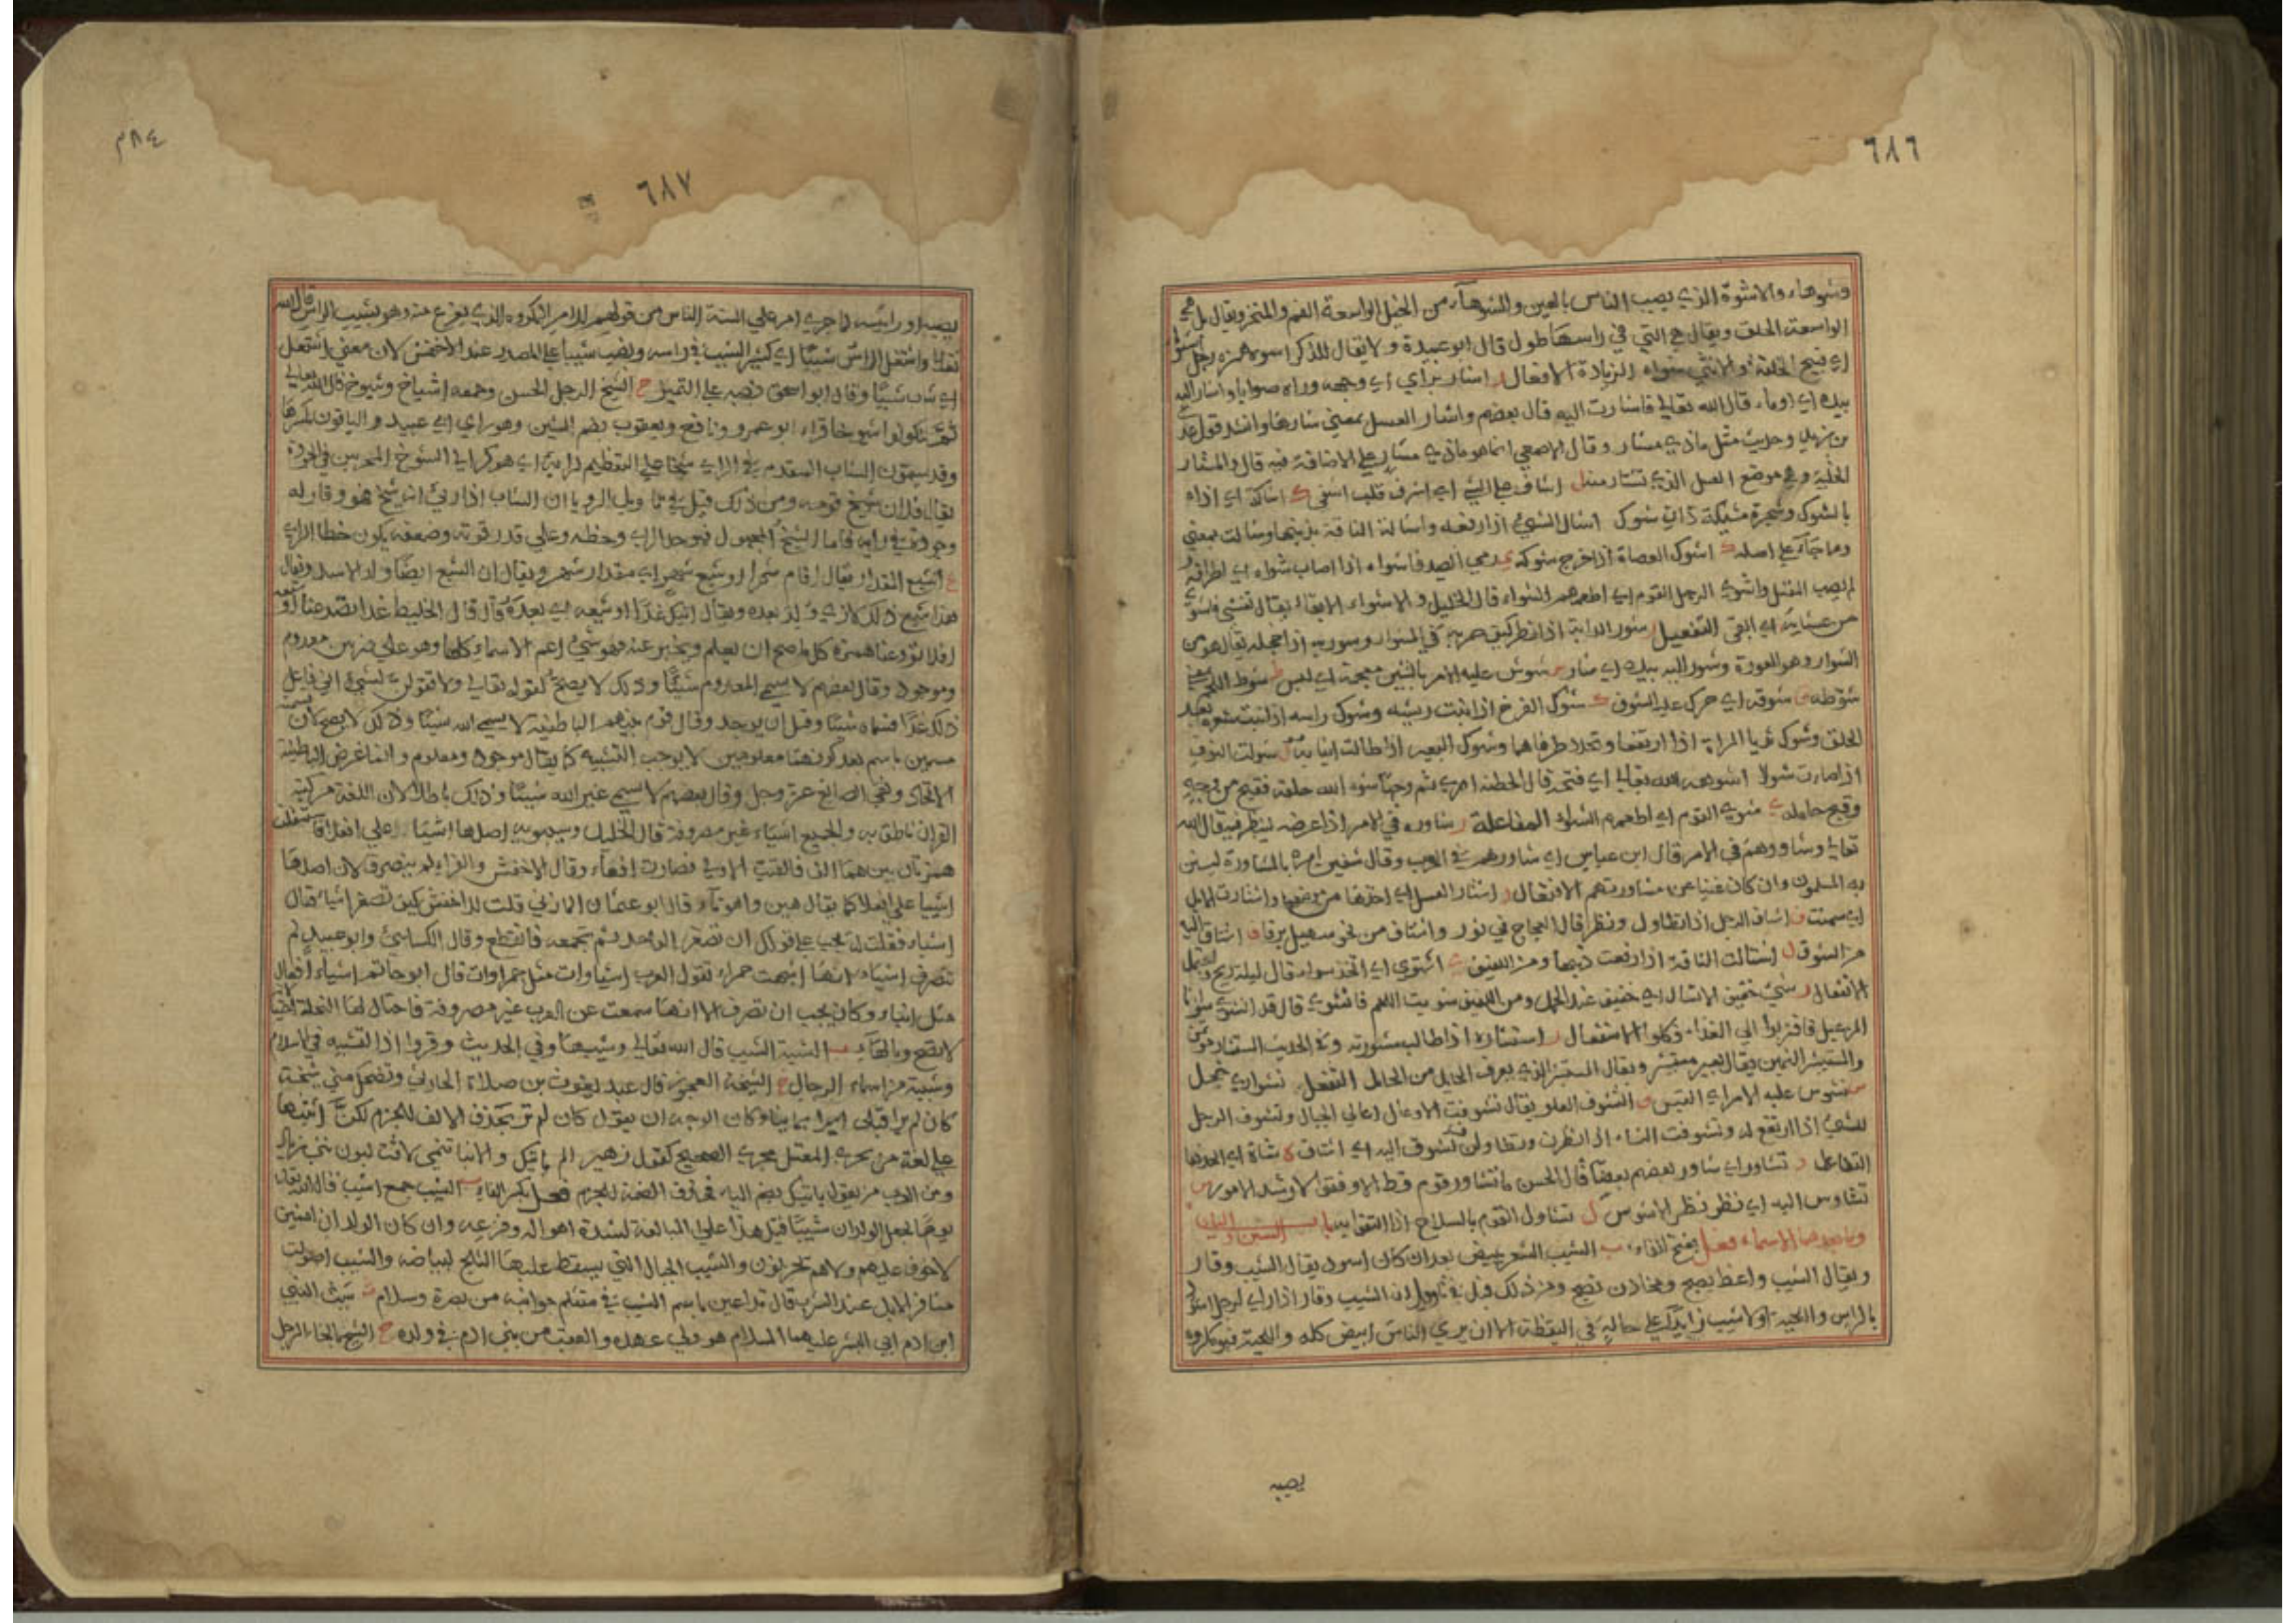 ٦٨٦
وشوهاء والاشوة الذي يصيب الناس بالعين والشوهآء من الخيل الواسعة الفم والمنخر ويقال بل هي
الواسعة الحلق ويقال هي التي في راسها طول قال ابو عبيدة ولا يقال للذكر اشوه رجل
اي قبيح الخلقة والانثى شواه الزيادة الافعال ر اشار براي اي وجهه وراه صوابا واشار اليه
بيده اي اوماء قال الله تعالى فاشارت اليه قال بعضهم واشار العسل بمعنى شارها وانشد قول عدي
بن زيد وحديث مثل ماذي مشار وقال الاصمعي انما هو ماذي مشار على الاضافة فيه قال والمشار
الخلية وهي موضع العسل الذي تشتار منه ف اشاف على الشي اي اشرف قلب اشفى ك اشاكه اي اذاه
بالشوك وشجرة مشيكة ذات شوك ل اشال الشيء اذا رفعه واشالت الناقة بذنبها وشالت بمعنى
وما جآء على اصله ك اشوك العضاة اذا خرج شوكه ي رمى الصيد فاشواه اذا اصاب شواه اي اطرافه
لم يصب المقتل واشوى الرجل القوم اي اطعمهم الشواء قال الخليل والاشواء الابقاء يقال تعشى فاشوى
من عشايه اي ابقى التفعيل ر شور الدابة اذا نظر كيف جريه في المشوار وشور به اذا خجله يقال هو من
الشوار وهو العورة وشور اليه بيده اي اشار س شوش عليه الامر بالشين معجمة اي لبس ط شوط اللحم
شوطه ق شوقه اي حرك عليه الشوق ك شوك الفرخ اذا نبت ريشه وشوك راسه اذا نبت شعره بعد
الحلق وشوك ثديا المراة اذا ارتفعا وتحدد طرفاهما وشوك البعير اذا طالت انيابه ل شولت النوق
اذا صارت شولا ه شوهه الله تعالى اي قبحه قال الحطئة ارى ثم وجها شوه الله خلقه فقبح من وجه
وقبح حامله ي شوى القوم اي اطعمهم الشواء المفاعلة ر شاوره في الامر اذا عرضه لينظر فيه قال الله
تعالى وشاورهم في الامر قال ابن عباس اي شاورهم في الحرب وقال سفين امره بالمشاورة ليستن
به المسلمون وان كان غنيا عن مشاورتهم الافتعال ر اشتار العسل اي اخذها من موضعها واشتارت الابل
اي سمنت ف اشتاف الرجل اذا تطاول ونظر قال العجاج في ثور واشتاف من نحو سهيل برقا ق اشتاق اليه
من الشوق ل اشتالت الناقة اذا رفعت ذنبها ومن اللفيف ي اشتوى اي اتخذ شواء قال ليلة ريح
الانفعال ر شي خفيف الانشال اي خفيف عند الحمل ومن اللفيف شويت اللحم فانشوى قال قد انشوى شواؤنا
المرعبل فاقتربوا الى الغذاء فكلوا الاستفعال ر استشاره اذا طالب مشورته وفي الحديث المستشار مؤتمن
والمستشير السمين ويقال بعير مستشير ويقال المستشير الذي يعرف الحايل من الحامل التفعل ر تشور اي خجل
س تشوس عليه الامر اي التبس ف التشوف العلو يقال تشوفت الاوعال اعالي الجبال وتشوف الرجل
للشيء اذا ارتفع له وتشوفت النساء الى النظرت وتطاولن ق تشوق اليه اي اشتاق ه شاة اي اتخذها
التفاعل ر تشاور اي شاور بعضهم بعضا قال الحسن ما تشاور قوم قط الا وفقوا لارشد الامور س
تشاوس اليه اي نظر نظر الاشوس ل تشاول القوم بالسلاح اذا التقوا به باب الشين واليا
وما بعدهما الاسماء فعل بفتح الفاء ب الشيب الشعر يبيض بعد ان كان اسود يقال الشيب وقار
ويقال الشيب واعظ يصيح ومخاذن نصح ومن ذلك قيل في تاويل ان الشيب وقار اذا راى الرجل اشمط
بالراس واللحية او لا شيب زايد على حاله في اليقظة الا ان يرى الناس ابيض كله واللحية فهو مكروه
يصيبه
٦٨٧
٣٨٤
يصيبه او رائيه لما جرى امر على السنة الناس من قولهم للامر المكروه الذي يفزع منه وهو يشيب الراس قال الله
تعالى واشتعل الراس شيبًا اي كثر الشيب في راسه ونصب شيبا على المصدر عند الاخفش لان معنى اشتعل
اي شاب شيبًا وقال ابو اسحق نصبه على التميز خ الشيخ الرجل المسن وجمعه اشياخ وشيوخ قال الله تعالى
ثم لتكونوا شيوخا قراء ابو عمرو ونافع ويعقوب بضم الشين وهو راي ابي عبيد والباقون بكسرها
وقد يسمون الشاب المقدم في الراي شيخا على التعظيم لرايه اي هو كراي الشيوخ المجربين في الجودة
يقال فلان شيخ قومه ومن ذلك قيل في تاويل الرويا ان الشاب اذا راى انه شيخ فهو وقار له
وجودة في رايه فاما الشيخ المجهول فهو جد الراي وحظه وعلى قدر قوته وضعفه يكون خطا الراي
ع الشيع المقدار يقال اقام شهرا او شيع شهر اي مقدار شهر ويقال ان الشيع ايضا ولد الاسد ويقال
هذا شيع ذلك للذي ولد بعده ويقال اتيك غدا او شيعه اي بعده قال قال الخليط غدا تصدعنا او شيعه
افلا تودعنا همزة كل ما صح ان يعلم ويخبر عنه فهو شيء اعم الاسماء كلها وهو على ضربين معدوم
وموجود وقال بعضهم لا يسمى المعدوم شيئًا وذلك لا يصح لقوله تعالى ولا تقولن لشيء اني فاعل
ذلك غدًا فسماه شيئا وقبل ان يوجد وقال قوم منهم الباطنية لا يسمى الله شيئا وذلك لا يصح لان
مسمين باسم بعد كونهما معلومين لا يوجب التشبيه كما يقال موجود ومعلوم وانما غرض الباطنية
الالحاد ونفي الصانع عز وجل وقال بعضهم لا يسمى غير الله شيئا وذلك باطل لان اللغة مركبة
القران ناطق به والجميع اشياء غير مصروفة قال الخليل وسيبويه اصلها اشيئا على افعلا فاستثقلت
همزتان بينهما الف فالقيت الاولى فصارت افعآء وقال الاخفش والفراء لم ينصرف لان اصلها
اشييا على افعلا كما يقال هين واهونآء قال ابو عثمان المازني قلت للاخفش كيف تصغر اشياء فقال
اشياء فقلت له يجب على قولك ان تصغر الواحد ثم تجمعه فانقطع وقال الكسائي وابو عبيد لم
تنصرف اشياء لانها اشبهت حمراء لقول العرب اشياوات مثل حمراوات قال ابو حاتم اشياء افعال
مثل انباء وكان يجب ان تصرف الا انها سمعت عن العرب غير مصروفة فاحتال لها النحاة
لا تصح وبالهاء ب الشيبة الشيب قال الله تعالى وشيبهً وفي الحديث وقروا اذا الشيبه في الاسلام
وشيبة من اسماء الرجال خ الشيخة العجوز قال عبد يغوث بن صلاة الحارثي وتضحك مني شيخة
كان لم ترا قبلي اسيرا يمانيا وكان الوجه ان يقول كان لم تر بحذف الالف للجزم لكن اثبتها
على لغة من يجري المعتل مجرى الصحيح كقول زهير الم ياتيك والانبا تنمي لاقت لبون بني زياد
ومن العرب من يقول ياتيك بضم الياء فحذف الضمة للجزم فعل بكسر الفاء ب الشيب جمع اشيب قال الله تعالى
يومًا يجعل الولدان شيبًا قيل هذا على المبالغة لشدة اهواله وفزعه وان كان الولدان امنين
لاخوف عليهم ولاهم يحزنون والشيب الجبال التي يسقط عليها الثلج لبياضه والشيب اصوات
مشافر الابل عند الشرب قال تداعين باسم الشيب في متثلم جوانبه من بصرة وسلام ث شيث النبي
ابن ادم ابي البشر عليهما السلام هو ولي عهده والعقب من بني ادم في ولده ح الشيح بالحاء الرجل